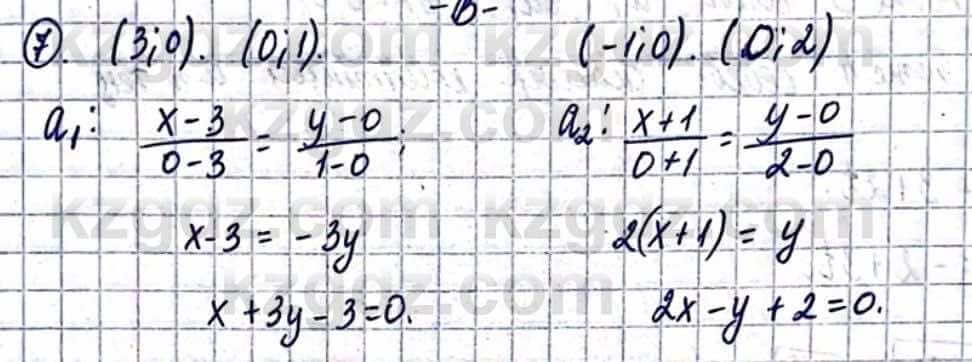 -6-
7. (3;0). (0;1). (-1;0). (0;2)
a₁: (x-3)/(0-3) = (y-0)/(1-0); a₂: (x+1)/(0+1) = (y-0)/(2-0)
x-3 = -3y 2(x+1) = y
x+3y-3=0. 2x-y+2=0.
kzgdz.com kzgdz.com
kzgdz.com kzgdz.com
kzgdz.com kzgdz.com
kzgdz.com